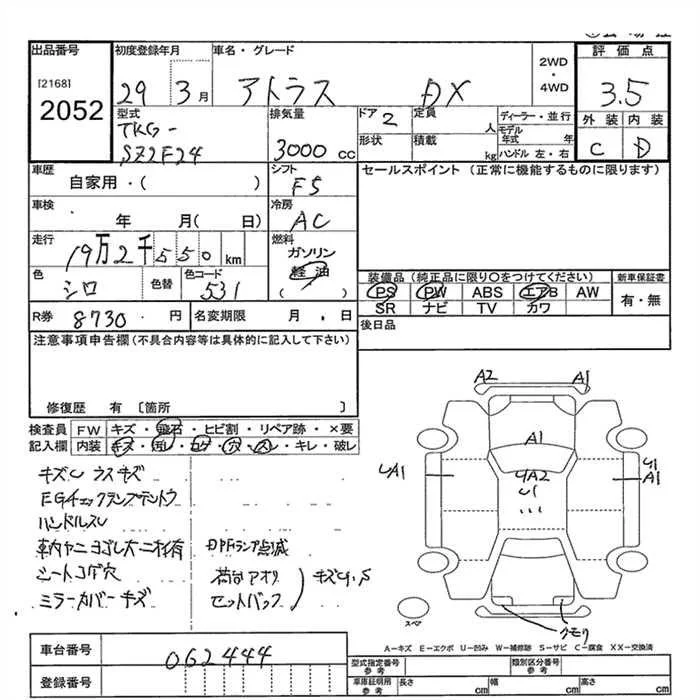 出品番号 初度登録年月 車名・グレード 2WD ・ 4WD 評価点
[2168] 2052 29 3月 アトラス DX 3.5
型式 TKG- SZ2F24 排気量 3000 cc ドア 2 定員 人 ディーラー・並行 外装 内装
形状 積載 kg モデル年式 年 ハンドル 左・右 C D
車歴 自家用・( ) シフト F5 セールスポイント (正常に機能するものに限ります)
車検 年 月( 日) 冷房 AC
走行 19万2千550 km 燃料 ガソリン 軽油 ( )
色 シロ 色替 色コード 531 装備品 (純正品に限り〇をつけてください) 新車保証書
PS PW ABS エアB AW 有・無
SR ナビ TV カワ
R券 8730 円 名変期限 月 . 日 後日品
注意事項申告欄(不具合内容等は具体的に記入して下さい)
修復歴 有 〔箇所 〕
検査員 FW キズ・飛石・ヒビ割・リペア跡・×要
記入欄 内装 キズ・汚レ・コゲ・穴・スレ・キレ・破レ
キズU ウスキズ
EGチェックランプテントウ
ハンドルスレ
車内ヤニヨゴレ大ニオイ有 DPFランプ点滅
シートコゲ穴 荷台アオリ
ミラーカバーキズ セットバック キズU.S
A2 A1
A1
UA1 UA2 U1 U1 A1
スペア クモリ
A-キズ E-エクボ U-凹み W-補修跡 S-サビ C-腐食 XX-交換済
車台番号 062444 型式指定番号 参考 類別区分番号 参考
登録番号 車庫証明用 参考 長さ cm 幅 cm 高さ cm